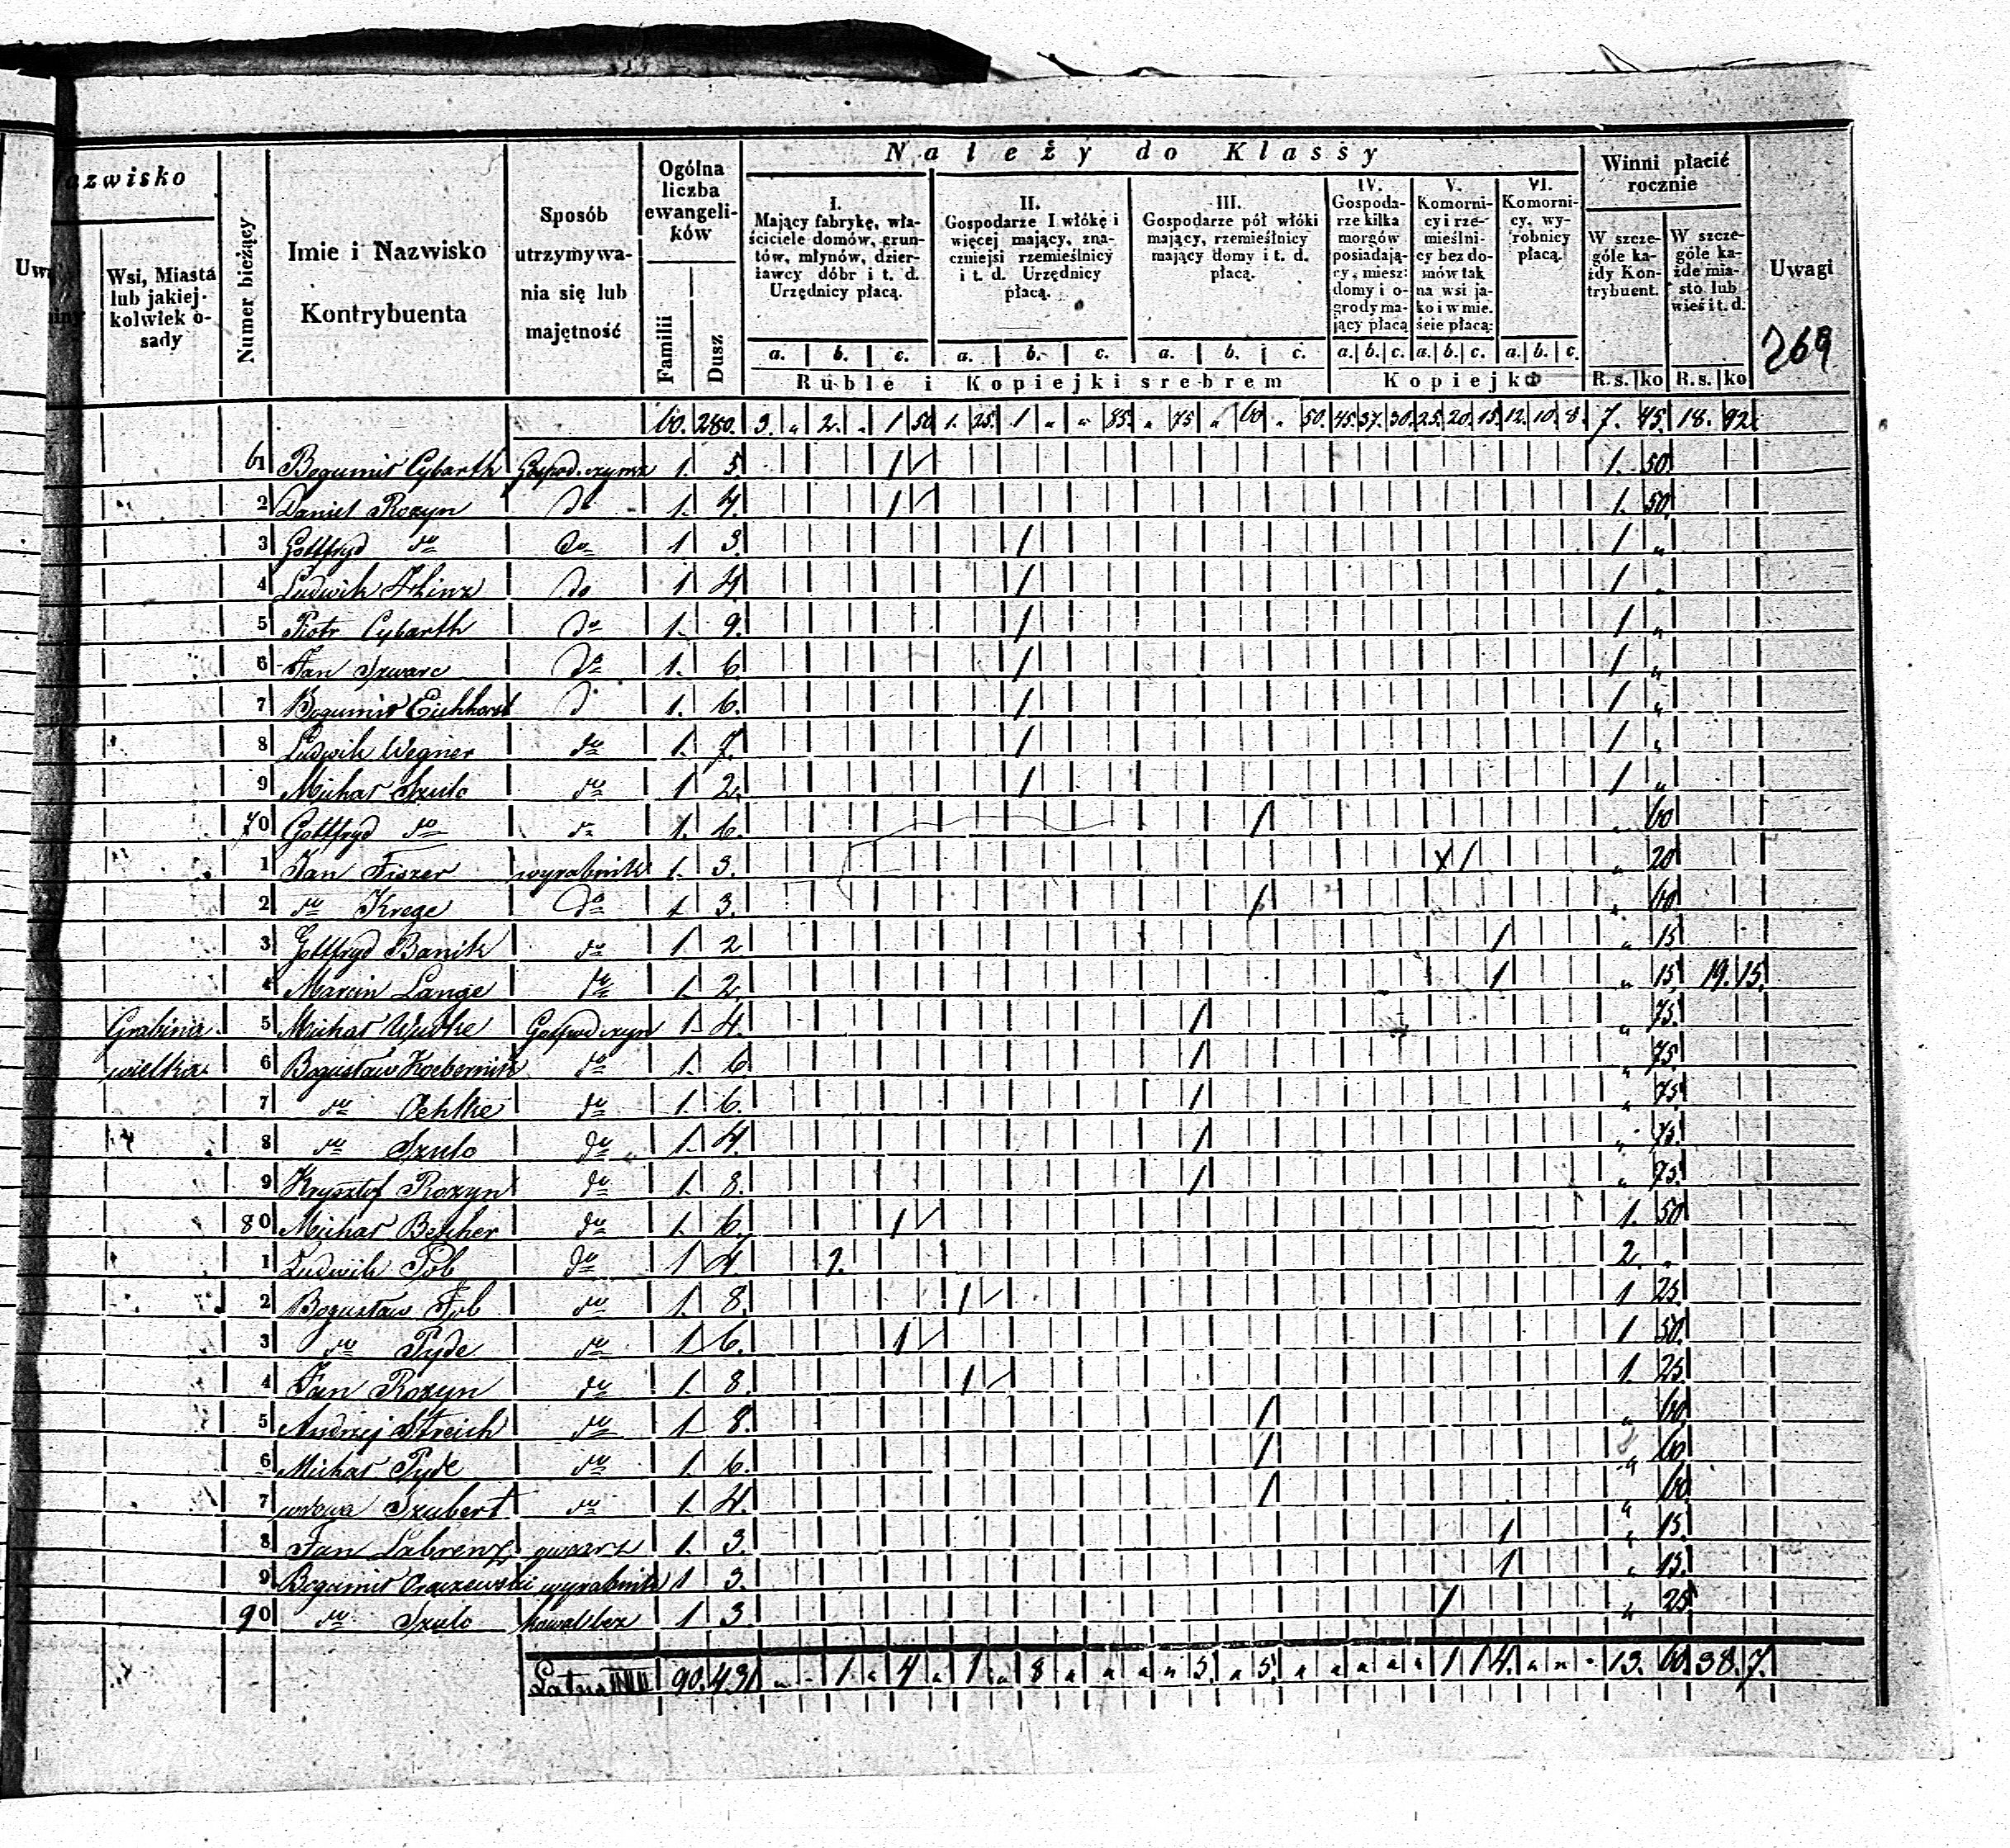 Należy do Klassy
azwisko
Uw
Wsi, Miasta lub jakiej-kolwiek o-sady
Numer bieżący
Imie i Nazwisko Kontrybuenta
Sposób utrzymywa-nia się lub majętność
Ogólna liczba ewangeli-ków
Familii
Dusz
I. Mający fabrykę, wła-ściciele domów, grun-tów, młynów, dzier-żawcy dóbr i t. d. Urzędnicy płacą.
II. Gospodarze I włókę i więcej mający, zna-czniejsi rzemieślnicy i t. d. Urzędnicy płacą.
III. Gospodarze pół włóki mający, rzemieślnicy mający domy i t. d. płacą.
IV. Gospoda-rze kilka morgów posiadają-cy, miesz: domy i o-grody ma-jący płacą
V. Komorni-cy i rze-mieślni-cy bez do-mów tak na wsi ja-ko i w mie-ście płacą:
VI. Komorni-cy, wy-robnicy płacą.
Winni płacić rocznie
W szcze-góle ka-żdy Kon-trybuent.
W szcze-góle ka-żde mia-sto lub wieś i t. d.
Uwagi
269
a. b. c. a. b. c. a. b. c. a. b. c. a. b. c. a. b. c.
Ruble i Kopiejki srebrem
Kopiejki
R. s. ko R. s. ko
60. 280. 3. „ 2. „ 1 50 1. 25. 1 „ „ 85. „ 75 „ 60 „ 50. 45. 37. 30. 25. 20. 15. 12. 10. 8. 7. 45. 18. 92.
61 Bogumił Cybarth Gospod. czynsz 1. 5. 1 1. 50.
2 Daniel Rozyn do 1. 4. 1 1. 50.
3 Gottfryd do do 1 3. 1 1 „
4 Ludwik Hinz do 1 4 1 1 „
5 Piotr Cybarth do 1. 9. 1 1 „
6 Jan Szwarc do 1. 6. 1 1 „
7 Bogumił Eichhorst d 1. 6. 1 1 „
8 Ludwik Wegner do 1. 7. 1 1 „
9 Michał Szulc do 1 2. 1 1 „
70 Gottfryd do do 1. 6. 1 „ 60
1 Jan Fiszer wyrabnik 1. 3. x 1 „ 20
2 do Krege do 1 3. 1 „ 60.
3 Gottfryd Banik do 1 2 1 „ 15
4 Marcin Lange do 1. 2. 1 „ 15. 19. 15.
Grabina 5 Michał Wudke Gospod czyn 1. 4. 1 „ 75.
wielka 6 Bogusław Koebernik do 1. 6 1 „ 75.
7 do Oehlke do 1. 6. 1 „ 75.
8 do Szulc do 1. 4. 1 „ 75.
9 Krysztof Rozyn do 1. 8. 1 „ 75.
80 Michał Becher do 1. 6. 1 1. 50
1 Ludwik do 1 4 1. 2. „
2 Bogusław do 1. 8. 1 1 25.
3 do Pyde do 1 6. 1 1 50.
4 Jan Rozyn do 1. 8. 1 1. 25.
5 Andrzej Streich do 1 8. 1 „ 60.
6 Michał Pyde do 1. 6. 1 „ 60
7 wdowa Szubert do 1. 4. 1 „ 60.
8 Jan Labrenz 1. 3. 1 „ 15.
9 Bogumił wyrabnik 1 3. 1 „ 15.
90 do Szulc kowal bez 1 3 1 „ 25.
Latus 90. 431 „ „ 1. „ 4 „ 1 „ 8 „ „ „ „ 5. „ 5. „ „ „ „ „ 1 1 4. „ „ „ 13. 60. 38. 7.